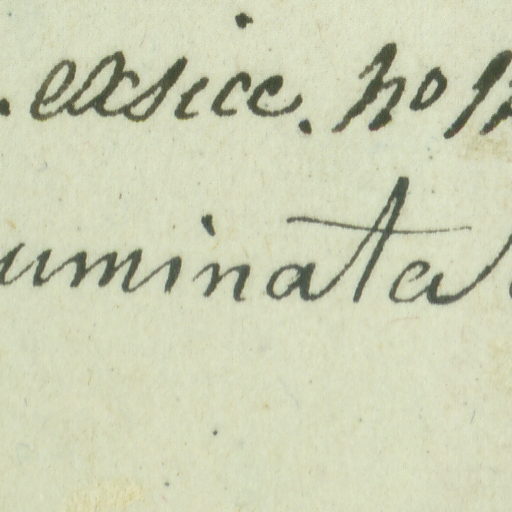 . exsicc. no
uminata